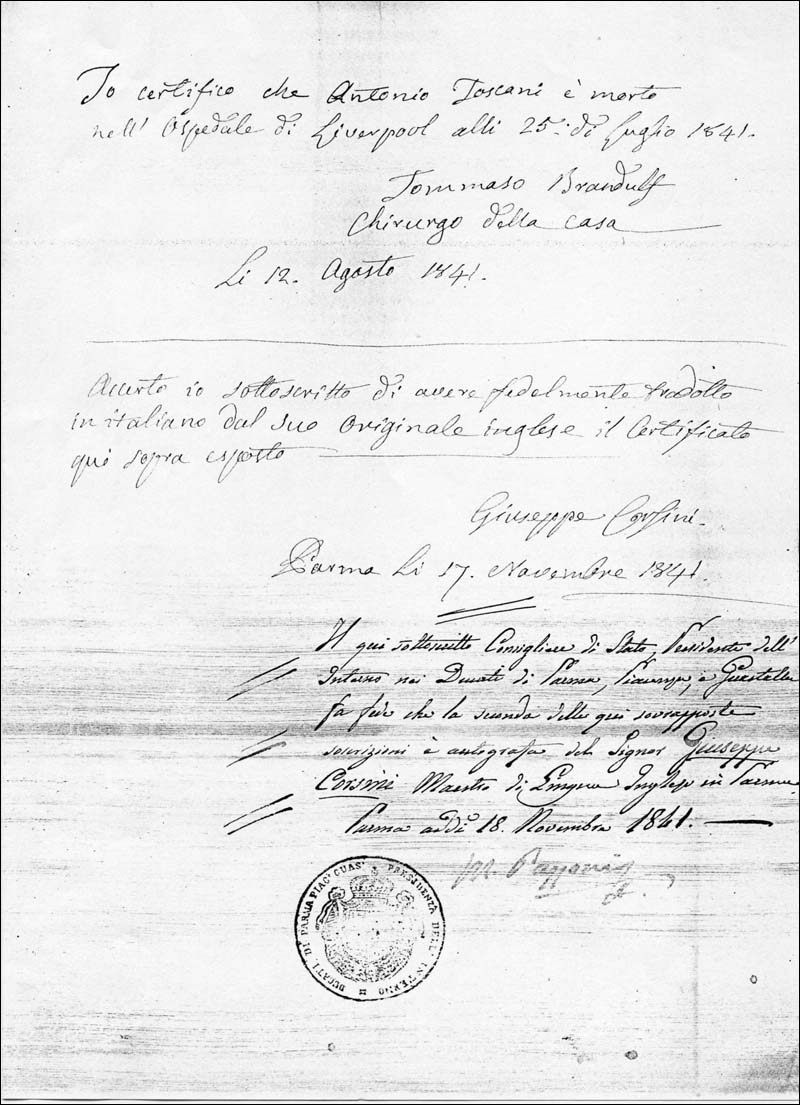 Io certifico che Antonio Toscani è morto
nell' Ospedale di Liverpool alli 25: di Luglio 1841.
Tommaso
Chirurgo della casa
Li 12. Agosto 1841.
Accerto io sottoscritto di avere fedelmente tradotto
in italiano dal suo originale inglese il Certificato
qui sopra esposto
Giuseppe Corsini.
Parma li 17. Novembre 1841.
Il qui sottoscritto Consigliere di Stato, Presidente dell'
Interno nei Ducati di Parma, Piacenza, e Guastalla
fa fede che la seconda delle qui sovrapposte
soscrizioni è autografa del Signor Giuseppe
Corsini Maestro di Lingua Inglese in Parma
Parma addì 18. Novembre 1841.
DUCATI DI PARMA PIAC. GUAS. PRESIDENZA DELL' INTERNO